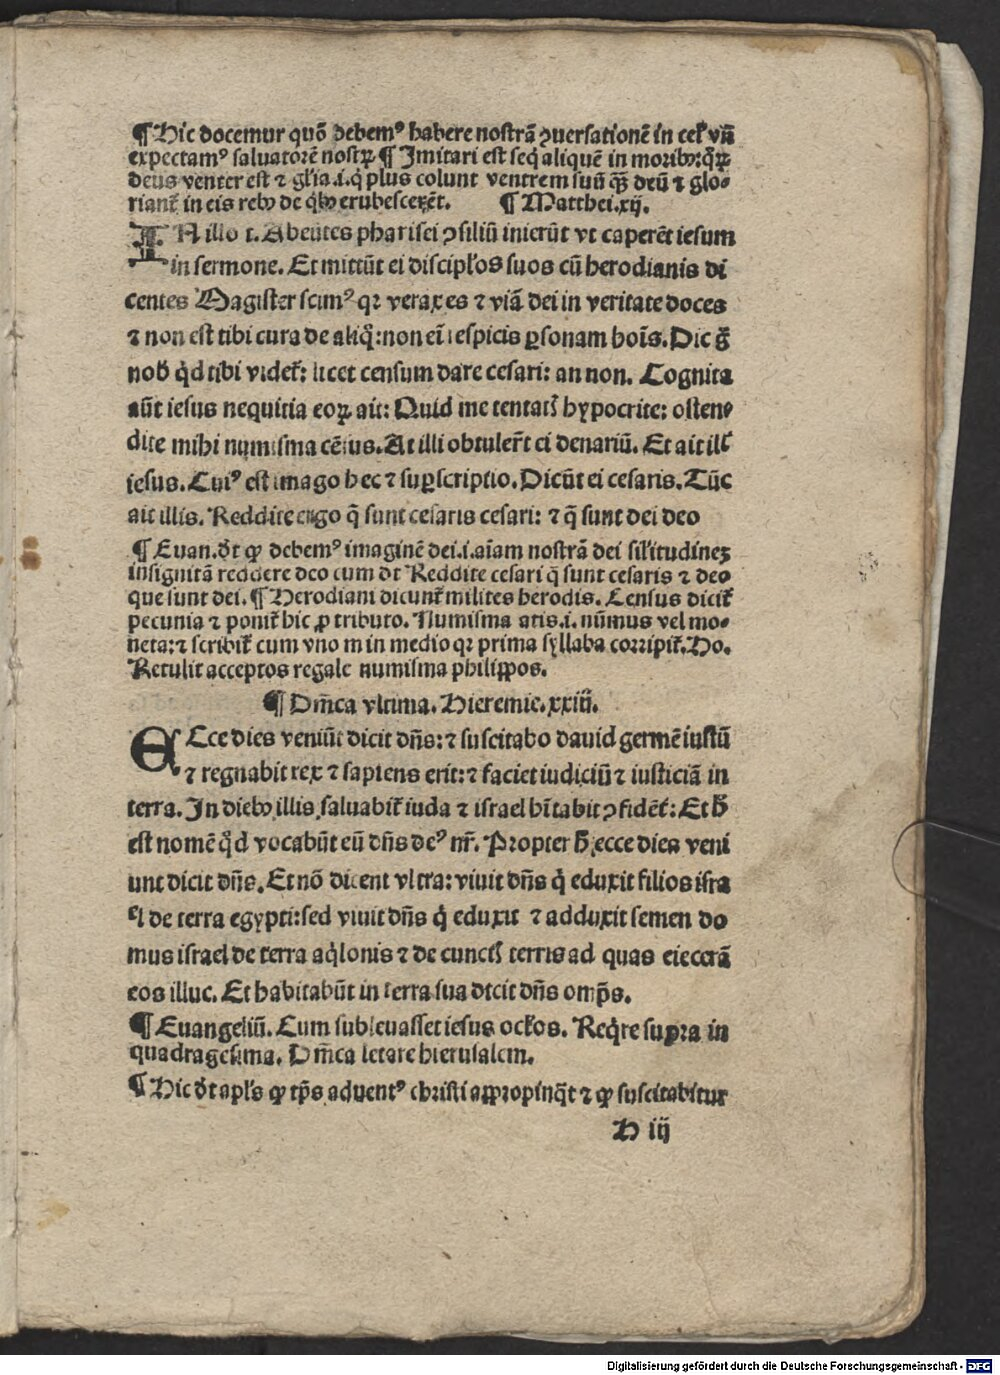 ¶ Hic docemur quō debemꝰ habere nostrā ꝯuersationē in cel̕ vñ
expectamꝰ saluatorē nostꝝ ¶ Imitari est seq̇ aliquē in moribꝫ: qꝝ
deus venter est ⁊ gl̄ia .i. q̇ plus colunt ventrem suū qꝫ̄ deū ⁊ glo⸗
riant̄ in eis rebꝫ de q̇bꝫ erubescerēt. ¶ Matthei. xij.
IN illo t. Abeūtes pharisei ꝯsiliū inierūt vt caperēt iesum
in sermone. Et mittūt ei discipl̕os suos cū herodianis di
centes Magister scimꝰ qꝛ verax es ⁊ viā dei in veritate doces
⁊ non est tibi cura de aliq̇: non eī respicis ꝑsonam hoīs. Dic g̊
nob̕ q̇d tibi videt̄: licet censum dare cesari: an non. Cognita
aūt iesus nequitia eoꝝ ait: Quid me tentat̕ hypocrite: osten⸗
dite mihi numisma cēsus. At illi obtuler̄t ei denariū. Et ait ill̕
iesus. Cuiꝰ est imago hec ⁊ suꝑscriptio. Dicūt ei cesaris. Tūc
ait illis. Reddite ergo q̄ sunt cesaris cesari: ⁊ q̄ sunt dei deo
¶ Euan. d̄t ꝙ debemꝰ imaginē dei .i. aīam nostrā dei sil̕itudineꝫ
insignitā reddere deo cum dt Reddite cesari q̄ sunt cesaris ⁊ deo
que sunt dei. ¶ Herodiani dicunt̄ milites herodis. Census dicit̄
pecunia ⁊ ponit̄ hic ꝓ tributo. Numisma atis .i. nūmus vel mo⸗
neta: ⁊ scribit̄ cum vno m in medio qꝛ prima syllaba corripit̄. Ho.
Retulit acceptos regale numisma philippos.
¶ Dm̄ca vltima. Hieremie. xxiij.
ECce dies veniūt dicit dn̄s: ⁊ suscitabo dauid germē iustū
⁊ regnabit rex ⁊ sapiens erit: ⁊ faciet iudiciū ⁊ iusticiā in
terra. In diebꝫ illis saluabit̄ iuda ⁊ israel hītabit ꝯfidēt̕: Et h̄
est nomē qd̄ vocabūt eū dn̄s deꝰ nr̄. Propter h̄ ecce dies veni
unt dicit dn̄s. Et nō dicent vltra: viuit dn̄s q̇ eduxit filios isra
el de terra egypti: sed viuit dn̄s q̇ eduxit ⁊ adduxit semen do
mus israel de terra aq̇lonis ⁊ de cunct̕ terris ad quas eiecerā
eos illuc. Et habitabūt in terra sua dicit dn̄s omp̄s.
¶ Euangeliū. Cum subleuasset iesus ocl̕os. Req̇re supra in
quadragesima. Dm̄ca letare hierusalem.
¶ Hic d̄t apl̄s ꝙ tp̄s aduentꝰ christi appropinq̄t ⁊ ꝙ suscitabitur
H iij
Digitalisierung gefördert durch die Deutsche Forschungsgemeinschaft - DFG